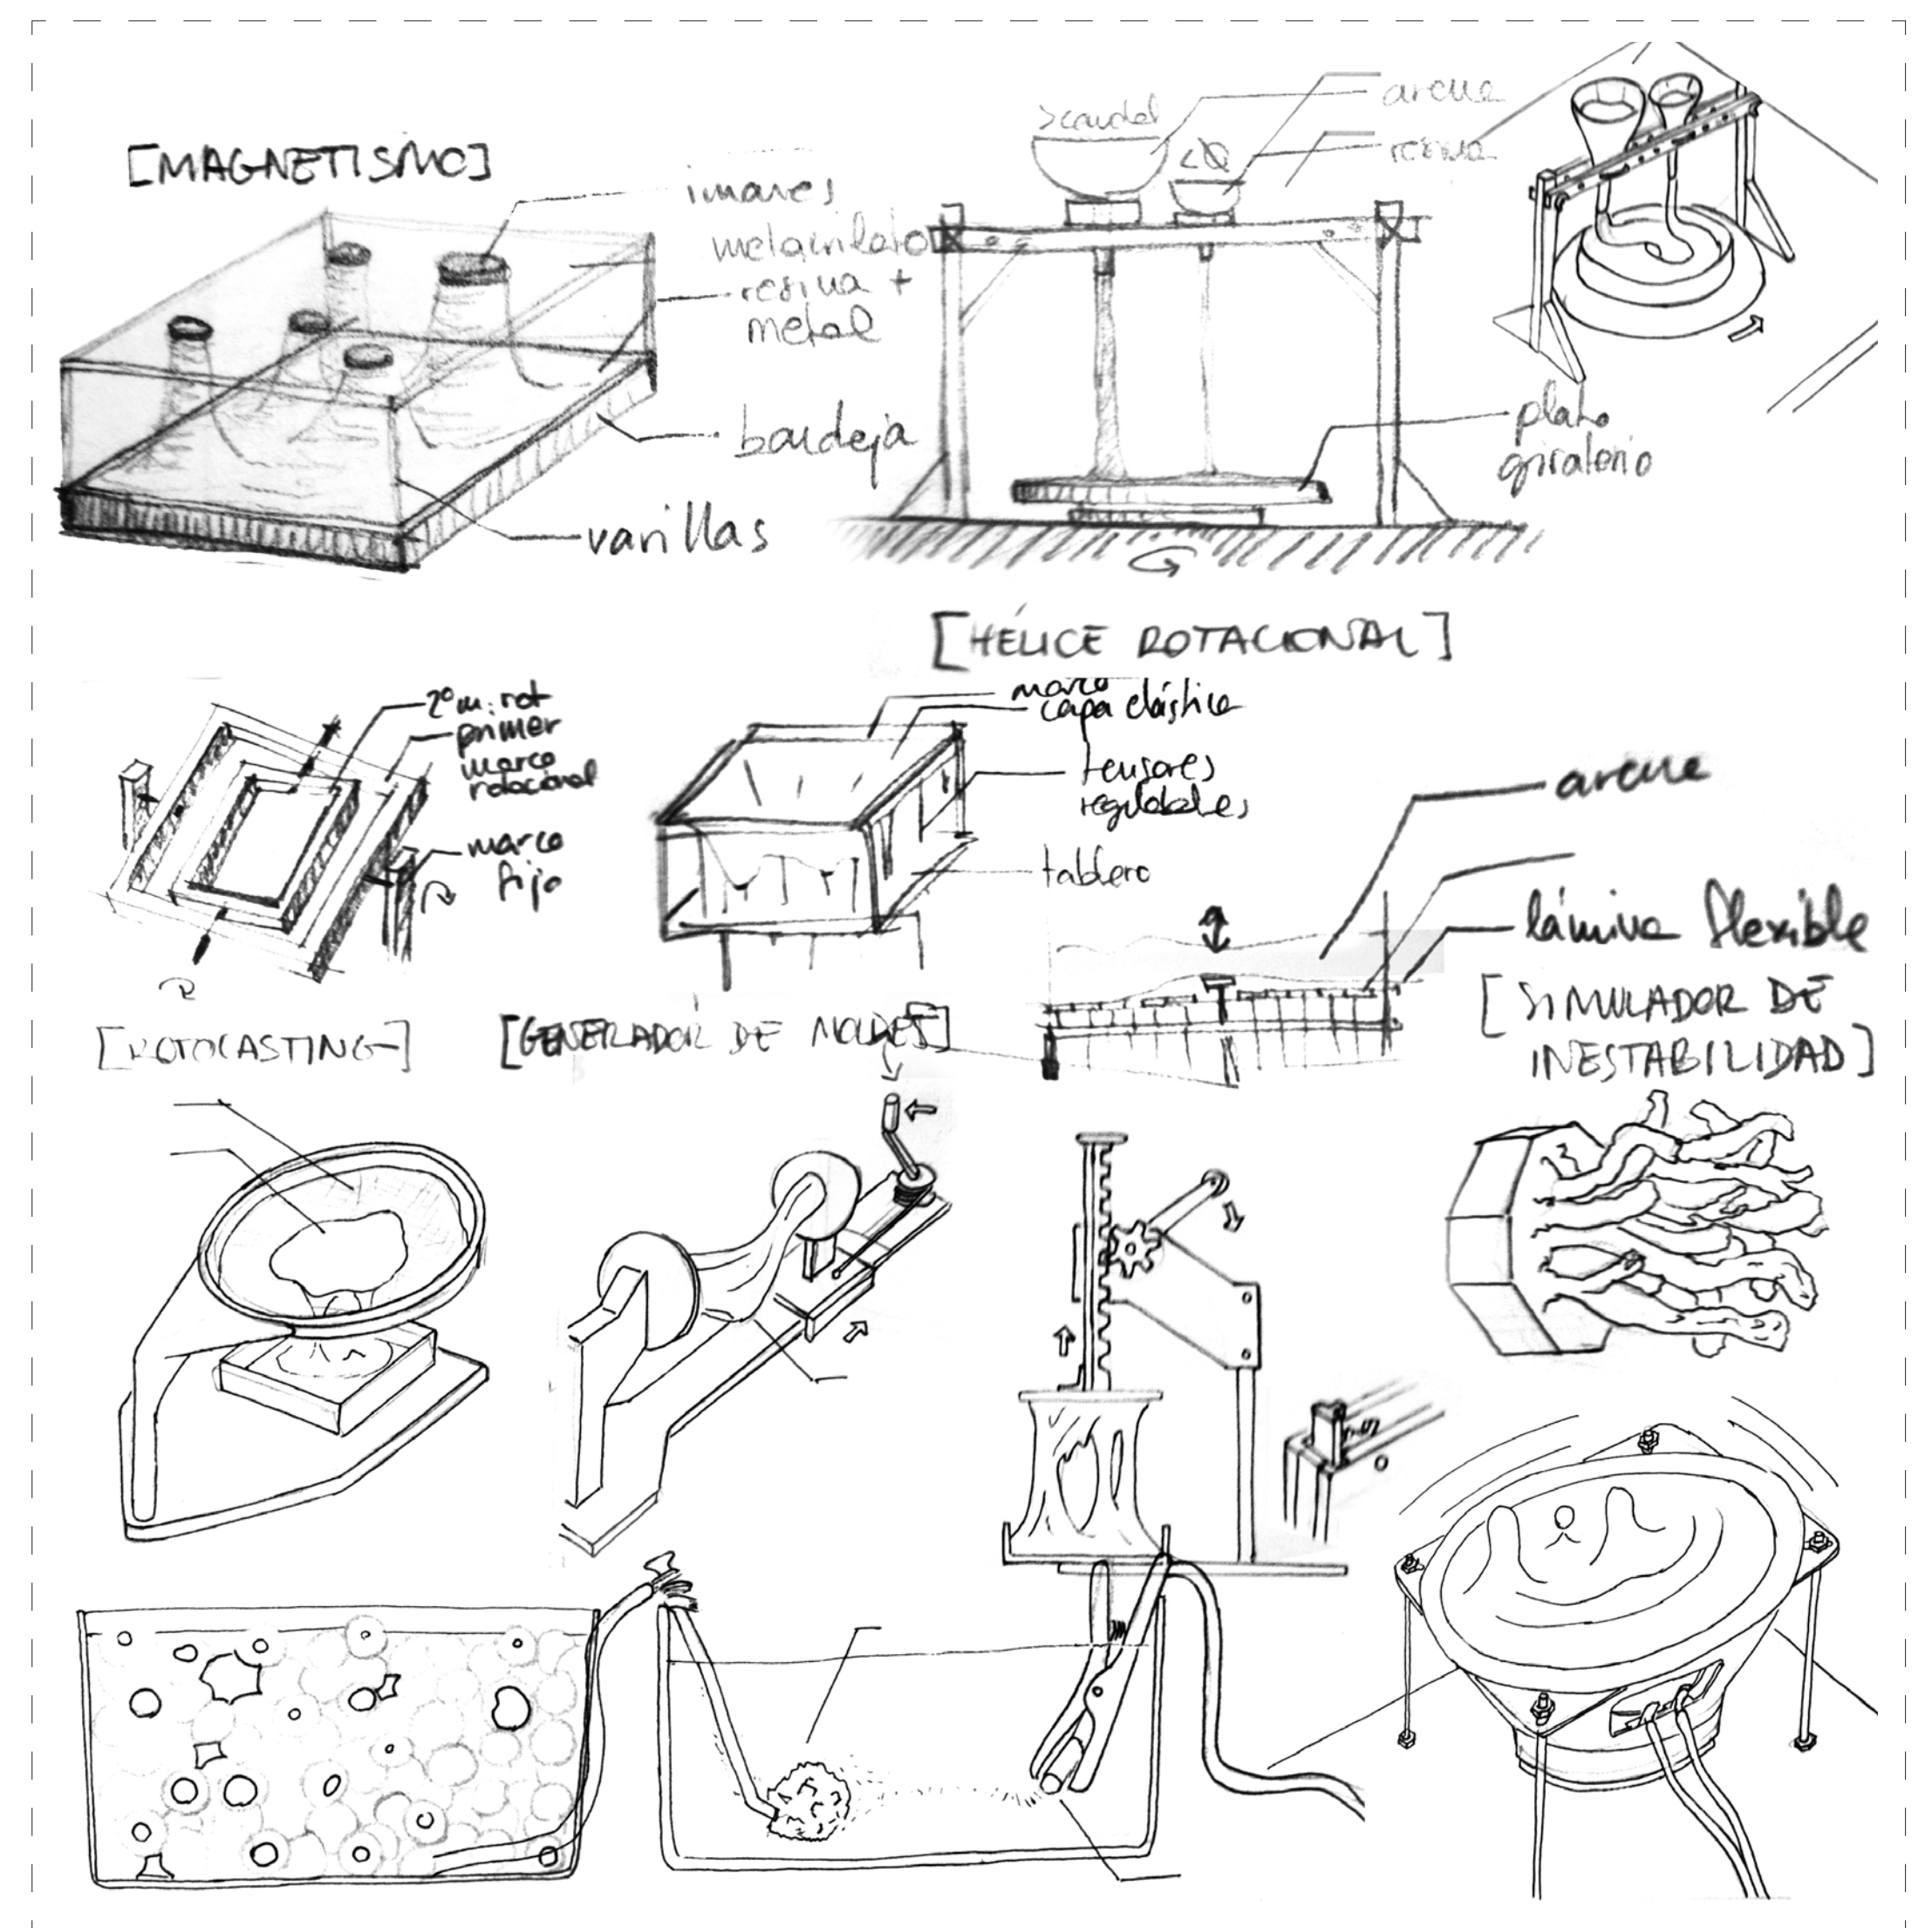 [MAGNETISMO]
imanes
metacrilato
resina +
metal
bandeja
varillas
>caudal
<Q
arena
resina
plato
giratorio
[HÉLICE ROTACIONAL]
2º m. rot
primer
marco
rotacional
marco
fijo
[ROTOCASTING]
marco
capa elástica
tensores
regulables
tablero
[GENERADOR DE MOLDES]
arena
lámina flexible
[SIMULADOR DE
INESTABILIDAD]